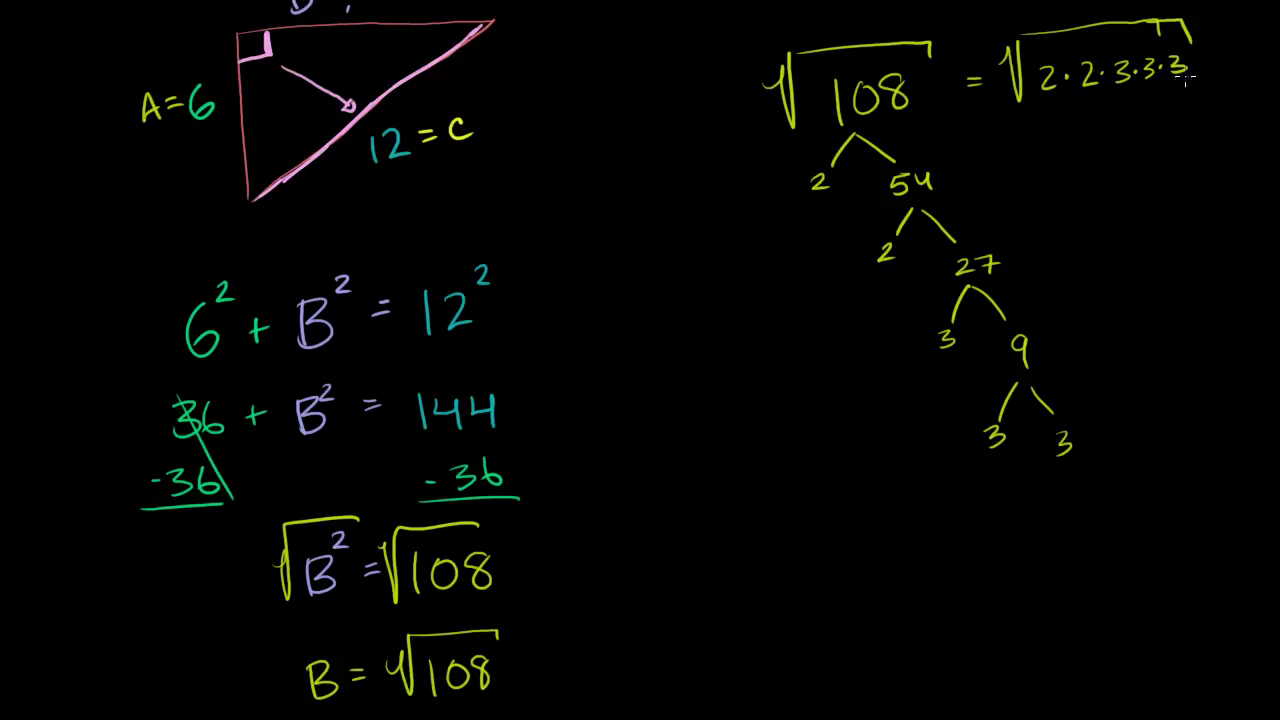 A=6
12 = C
6² + B² = 12²
36 + B² = 144
-36 -36
√B² = √108
B = √108
√108 = √2·2·3·3·3
2 54
2 27
3 9
3 3